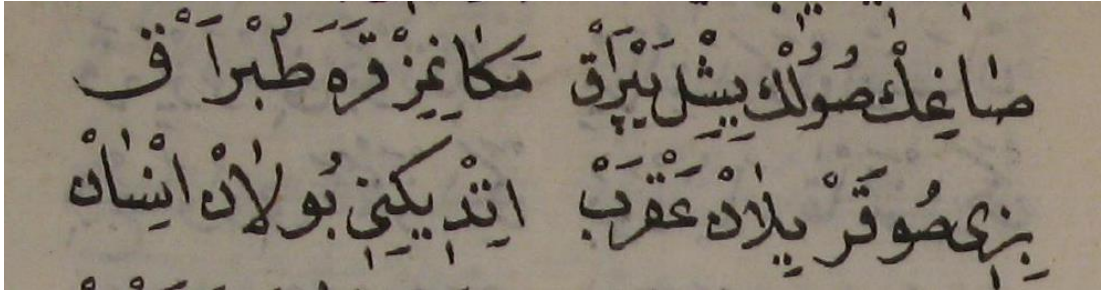 صَاغِكْ صُولُكْ يِشِلْ يَپْرَاقْ مَكَانِمِزْ قَرَه طُپْرَاقْ
بِزِى صُوقَرْ يِلَانْ عَقْرَبْ اِتْدِيكِنِى بُولَانْ اِنْسَانْ